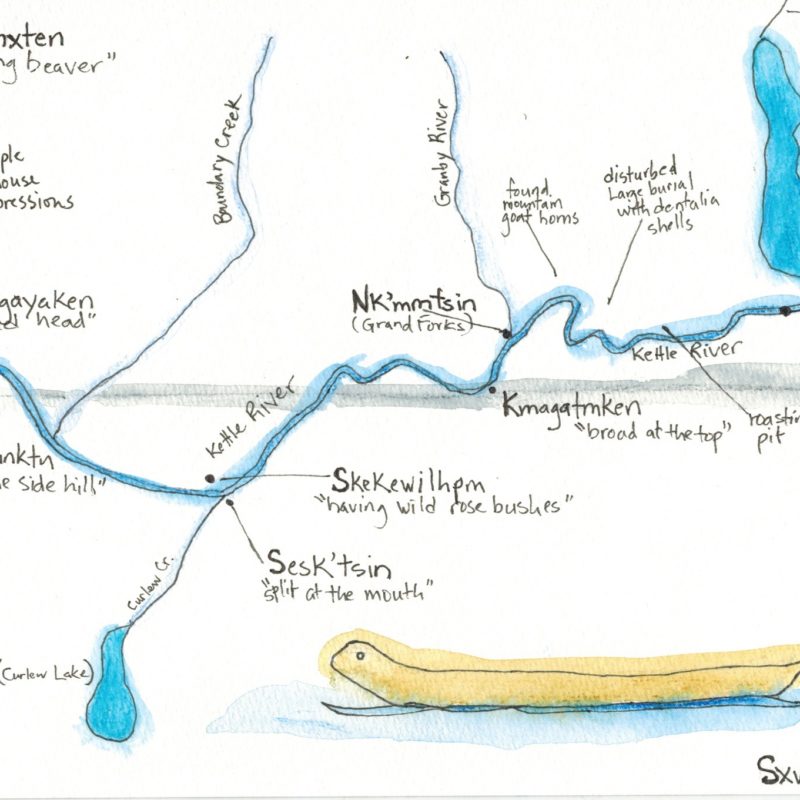 nxten
ng beaver"
ple
ouse
pressions
Boundary Creek
Granby River
found
mountain
goat horns
disturbed
Large burial
with dentalia
shells
gayaken
ed "head"
NK'mmtsin
(Grand Forks)
Kettle River
Kmagatmken
"broad at the top"
roastin
pit
Kettle River
nktn
e side hill"
SkeKewilhpm
"having wild rose bushes"
Sesk'tsin
"split at the mouth"
Curlew Cr.
(Curlew Lake)
Sx